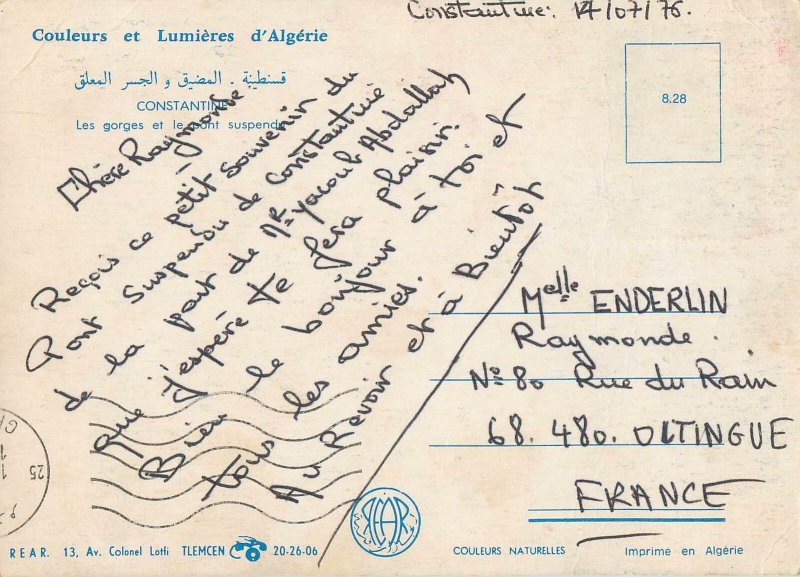 Constantine: 14/07/76.
Couleurs et Lumières d'Algérie
قسنطينة . المضيق و الجسر المعلق
CONSTANTINE
Les gorges et le pont suspendu
8.28
Chère Raymonde
Reçois ce petit souvenir du
Pont Suspendu de Constantine
de la part de Mr Yacoub Abdallah
que j'espère te fera plaisir.
Bien le bonjour à toi et
tous les amies.
Au Revoir et à Bientôt
Melle ENDERLIN
Raymonde.
No: 80 Rue du Rain
68.480. OLTINGUE
FRANCE
25
REAR
REAR. 13, Av. Colonel Lotfi TLEMCEN 20-26-06
COULEURS NATURELLES
Imprime en Algérie